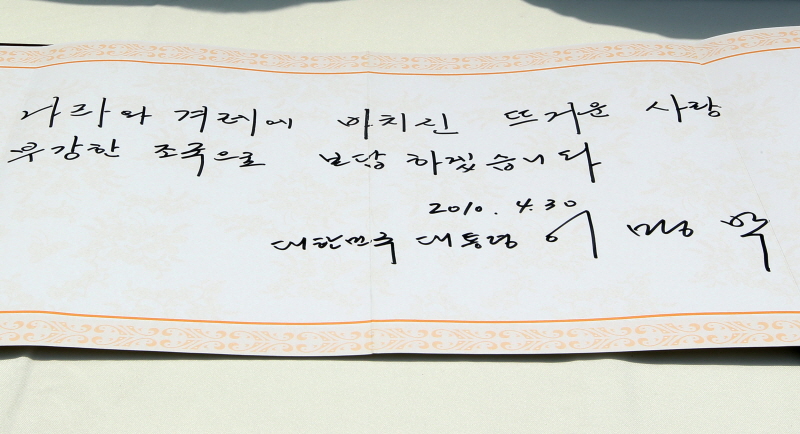 나라와 겨레에 바치신 뜨거운 사랑
부강한 조국으로 보답 하겠습니다
2010. 4. 30
대한민국 대통령 이 명 박